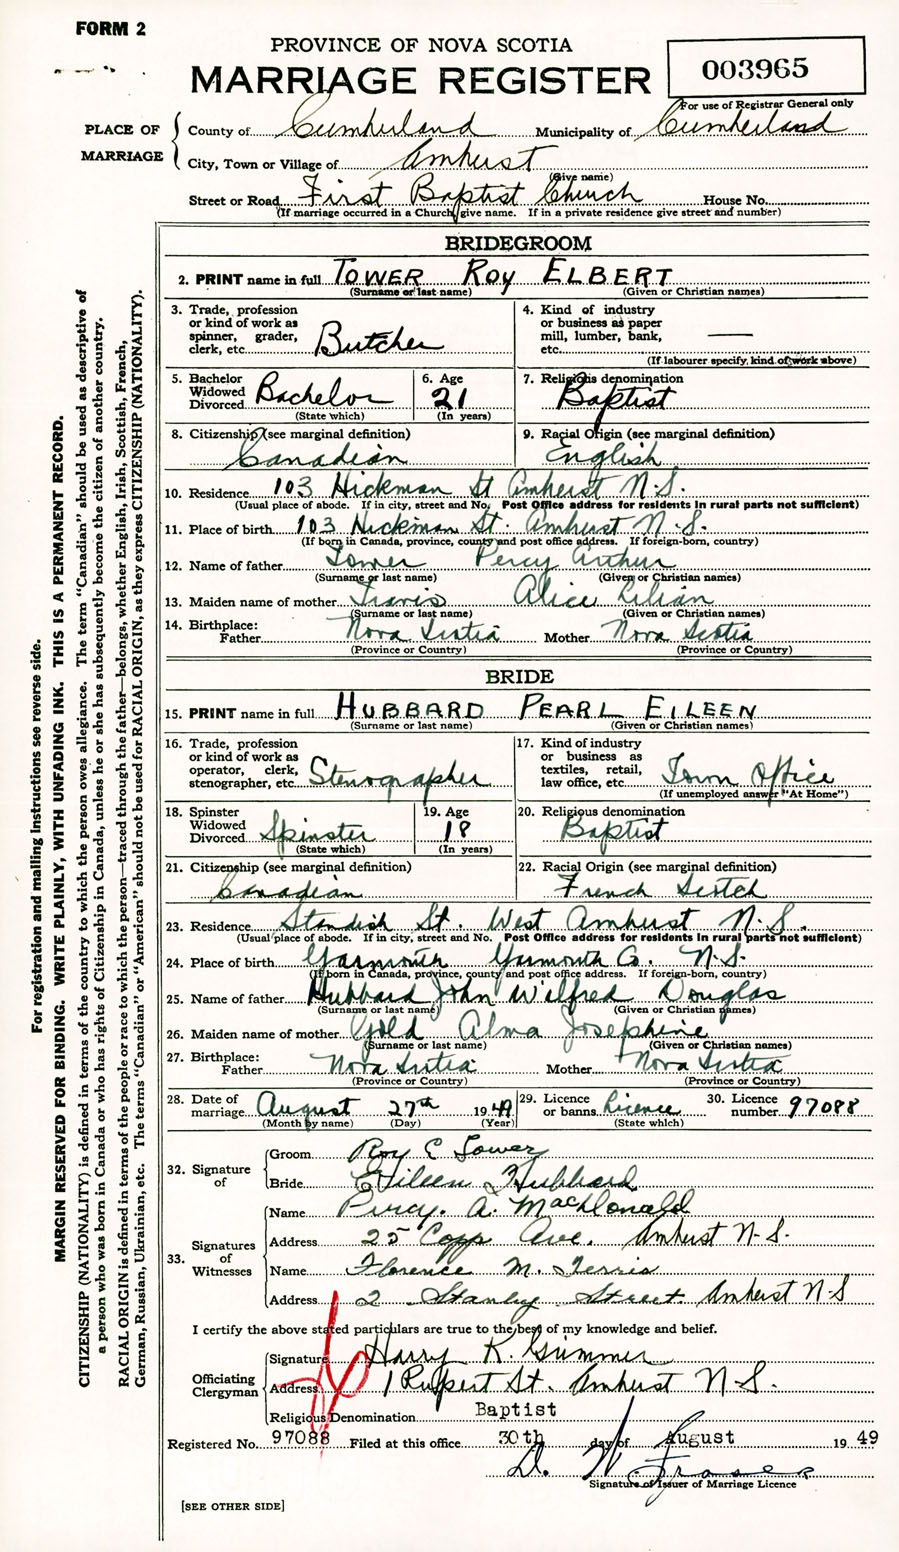 FORM 2
PROVINCE OF NOVA SCOTIA
MARRIAGE REGISTER
003965
For use of Registrar General only
PLACE OF MARRIAGE
County of Cumberland Municipality of Cumberland
City, Town or Village of Amherst
(Give name)
Street or Road First Baptist Church House No.
(If marriage occurred in a Church give name. If in a private residence give street and number)
BRIDEGROOM
2. PRINT name in full TOWER ROY ELBERT
(Surname or last name) (Given or Christian names)
3. Trade, profession or kind of work as spinner, grader, clerk, etc. Butcher
4. Kind of industry or business as paper mill, lumber, bank, etc. —
(If labourer specify, kind of work above)
5. Bachelor Widowed Divorced Bachelor
(State which)
6. Age 21
(In years)
7. Religious denomination
Baptist
8. Citizenship (see marginal definition)
Canadian
9. Racial Origin (see marginal definition)
English
10. Residence 103 Hickman St Amherst N.S.
(Usual place of abode. If in city, street and No. Post Office address for residents in rural parts not sufficient)
11. Place of birth 103 Hickman St. Amherst N.S.
(If born in Canada, province, county and post office address. If foreign-born, country)
12. Name of father Tower Percy Arthur
(Surname or last name) (Given or Christian names)
13. Maiden name of mother Travis Alice Lilian
(Surname or last name) (Given or Christian names)
14. Birthplace: Father Nova Scotia Mother Nova Scotia
(Province or Country) (Province or Country)
BRIDE
15. PRINT name in full HUBBARD PEARL EILEEN
(Surname or last name) (Given or Christian names)
16. Trade, profession or kind of work as operator, clerk, stenographer, etc. Stenographer
17. Kind of industry or business as textiles, retail, law office, etc. Town Office
(If unemployed answer "At Home")
18. Spinster Widowed Divorced Spinster
(State which)
19. Age 18
(In years)
20. Religious denomination
Baptist
21. Citizenship (see marginal definition)
Canadian
22. Racial Origin (see marginal definition)
French Scotch
23. Residence Standish St. West Amherst N.S.
(Usual place of abode. If in city, street and No. Post Office address for residents in rural parts not sufficient)
24. Place of birth Yarmouth Yarmouth Co. N.S.
(If born in Canada, province, county and post office address. If foreign-born, country)
25. Name of father Hubbard John Wilfred Douglas
(Surname or last name) (Given or Christian names)
26. Maiden name of mother Gold Alma Josephine
(Surname or last name) (Given or Christian names)
27. Birthplace: Father Nova Scotia Mother Nova Scotia
(Province or Country) (Province or Country)
28. Date of marriage August 27th 1949
(Month by name) (Day) (Year)
29. Licence or banns Licence
(State which)
30. Licence number 97088
32. Signature of
Groom Roy E Tower
Bride Eileen Hubbard
33. Signatures of Witnesses
Name Percy. A. MacDonald
Address 25 Copp Ave. Amherst N.S.
Name Florence M. Terris
Address 2 Stanley Street Amherst N S
I certify the above stated particulars are true to the best of my knowledge and belief.
Officiating Clergyman
Signature Harry K. Grimmer
Address 1 Rupert St. Amherst N.S.
Religious Denomination Baptist
Registered No. 97088 Filed at this office 30th day of August 19 49
D. W. Fraser
Signature of Issuer of Marriage Licence
[SEE OTHER SIDE]
For registration and mailing instructions see reverse side.
MARGIN RESERVED FOR BINDING. WRITE PLAINLY, WITH UNFADING INK. THIS IS A PERMANENT RECORD.
CITIZENSHIP (NATIONALITY) is defined in terms of the country to which the person owes allegiance. The term "Canadian" should be used as descriptive of
a person who was born in Canada or who has rights of Citizenship in Canada, unless he or she has subsequently become the citizen of another country.
RACIAL ORIGIN is defined in terms of the people or race to which the person—traced through the father—belongs, whether English, Irish, Scottish, French,
German, Russian, Ukrainian, etc. The terms "Canadian" or "American" should not be used for RACIAL ORIGIN, as they express CITIZENSHIP (NATIONALITY).